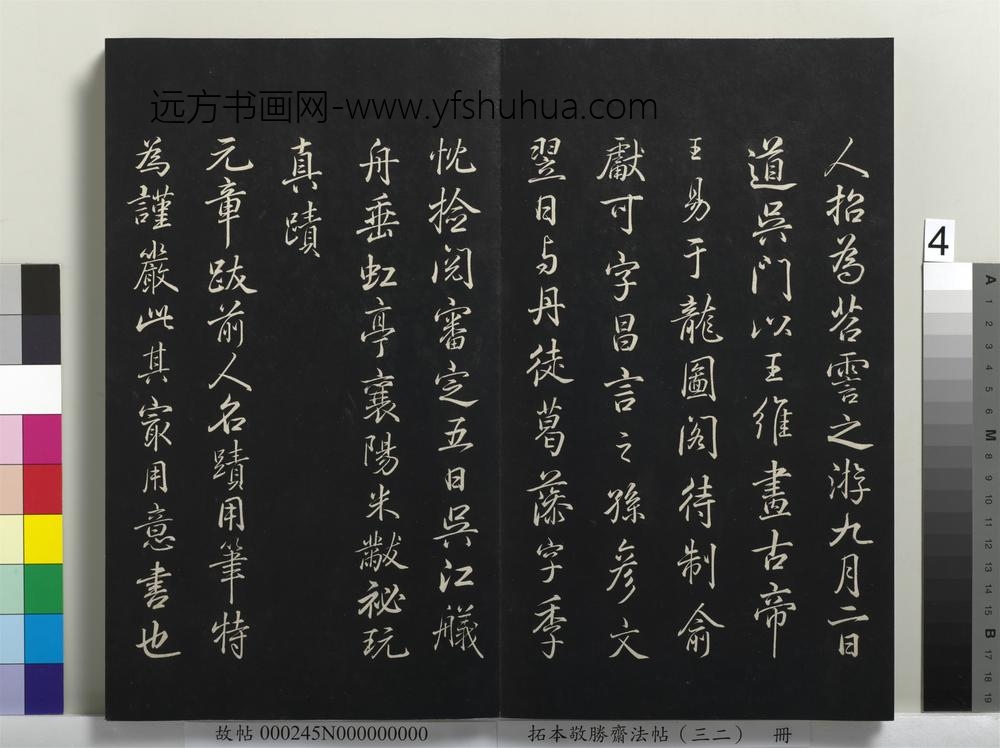 远方书画网-www.yfshuhua.com
人招為苕霅之游九月二日
道吳門以王維畫古帝
王易于龍圖閣待制俞
獻可字昌言之孫彥文
翌日与丹徒葛藻字季
忱撿閱審定五日吳江艤
舟垂虹亭襄陽米黻祕玩
真蹟
元章跋前人名蹟用筆特
為謹嚴此其㝡用意書也
4
A
1
2
3
4
5
6
M
8
9
10
11
12
13
14
15
B
17
18
19
故帖 000245N000000000
拓本敬勝齋法帖（三二） 冊